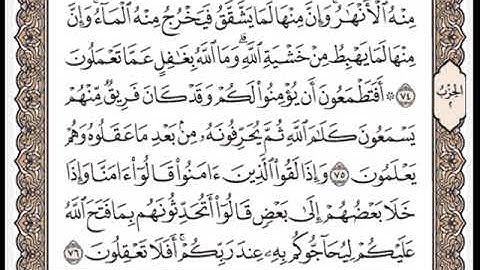 مِنْهُ ٱلْأَنْهَٰرُ وَإِنَّ مِنْهَا لَمَا يَشَّقَّقُ فَيَخْرُجُ مِنْهُ ٱلْمَآءُ وَإِنَّ
مِنْهَا لَمَا يَهْبِطُ مِنْ خَشْيَةِ ٱللَّهِ وَمَا ٱللَّهُ بِغَٰفِلٍ عَمَّا تَعْمَلُونَ
٧٤ ۞ أَفَتَطْمَعُونَ أَن يُؤْمِنُوا۟ لَكُمْ وَقَدْ كَانَ فَرِيقٌ مِّنْهُمْ
يَسْمَعُونَ كَلَٰمَ ٱللَّهِ ثُمَّ يُحَرِّفُونَهُۥ مِنۢ بَعْدِ مَا عَقَلُوهُ وَهُمْ
يَعْلَمُونَ ٧٥ وَإِذَا لَقُوا۟ ٱلَّذِينَ ءَامَنُوا۟ قَالُوٓا۟ ءَامَنَّا وَإِذَا
خَلَا بَعْضُهُمْ إِلَىٰ بَعْضٍ قَالُوٓا۟ أَتُحَدِّثُونَهُم بِمَا فَتَحَ ٱللَّهُ
عَلَيْكُمْ لِيُحَآجُّوكُم بِهِۦ عِندَ رَبِّكُمْ ۚ أَفَلَا تَعْقِلُونَ ٧٦
الحزب
٢